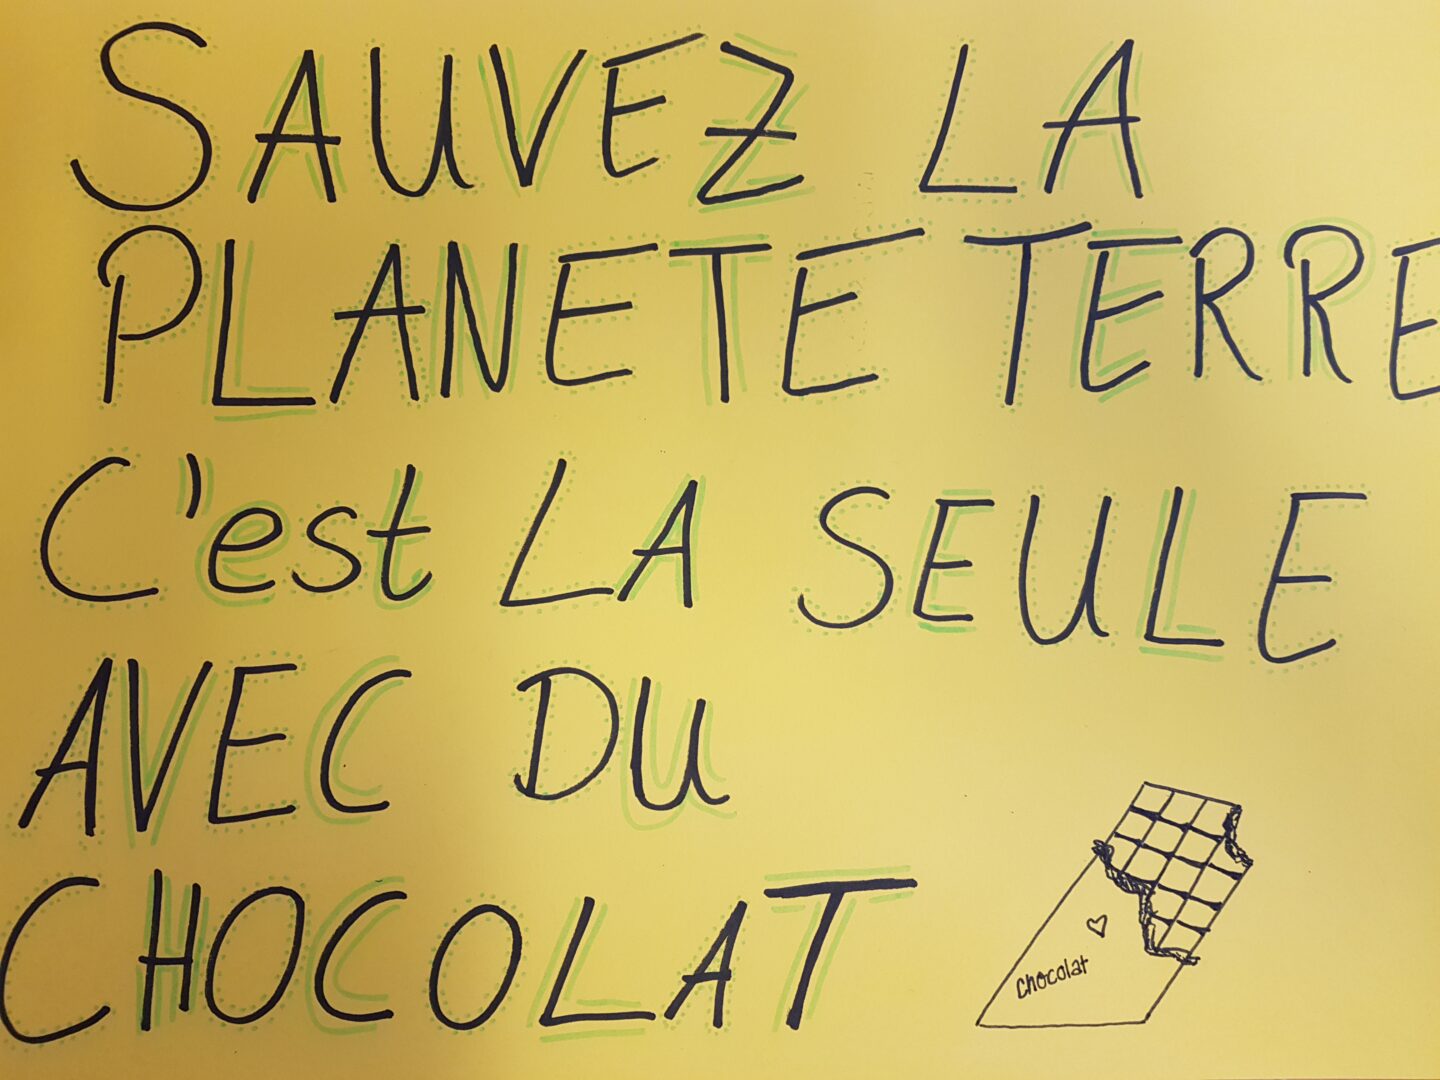 SAUVEZ LA
PLANETE TERRE
C'est LA SEULE
AVEC DU
CHOCOLAT
Chocolat